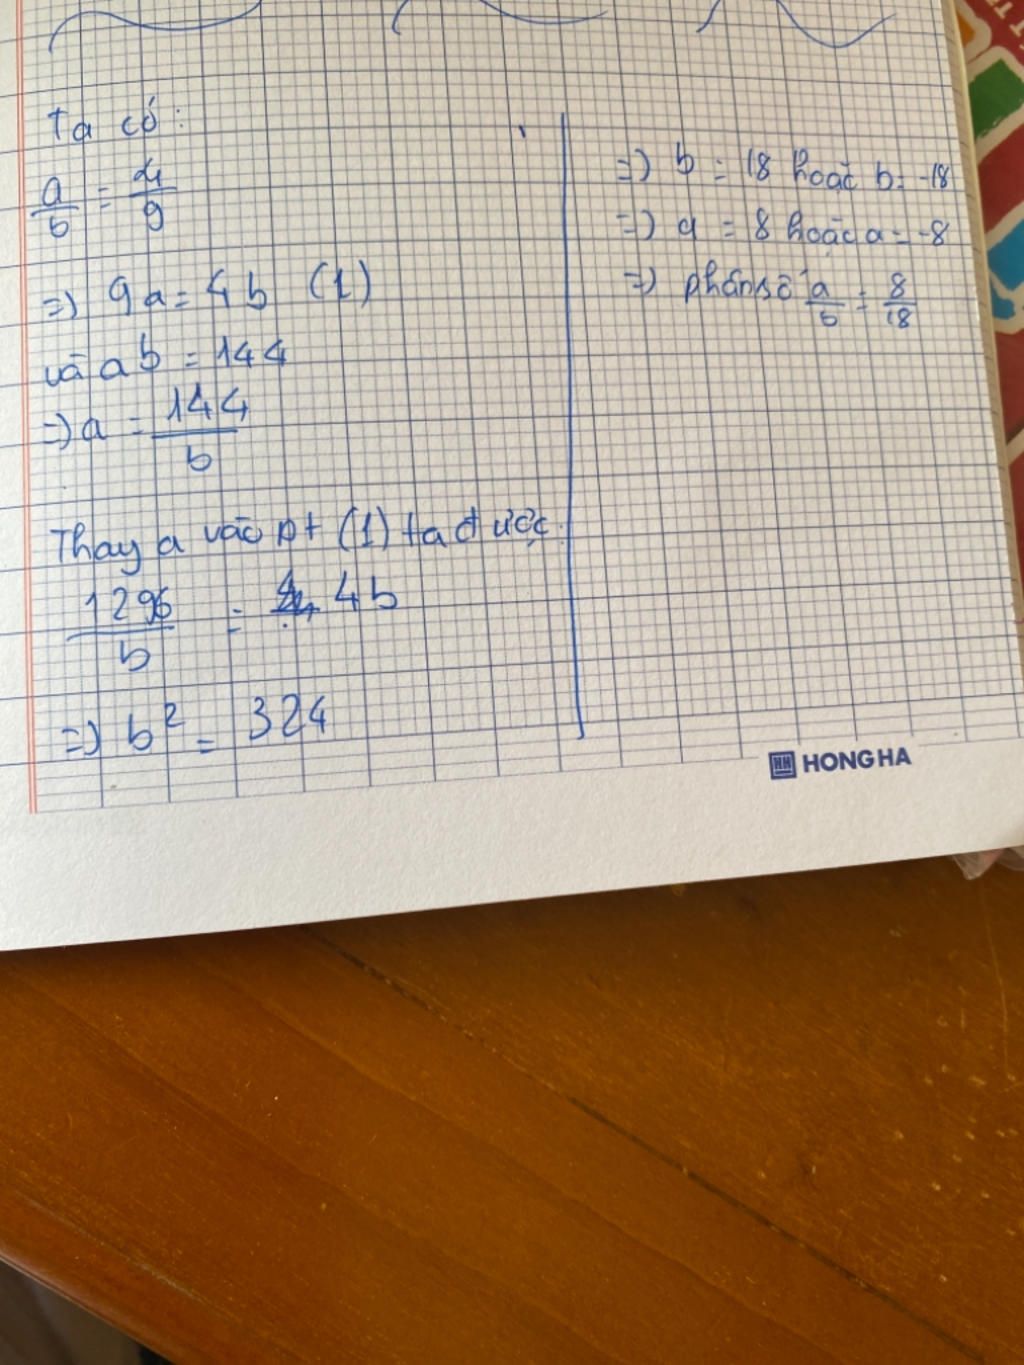 Ta có:
a/b = 4/9
=> 9a = 4b (1)
và ab = 144
=> a = 144/b
Thay a vào pt (1) ta được.
1296/b = 4b
=> b² = 324
=> b = 18 hoặc b = -18
=> a = 8 hoặc a = -8
=> phân số a/b = 8/18
HONG HA